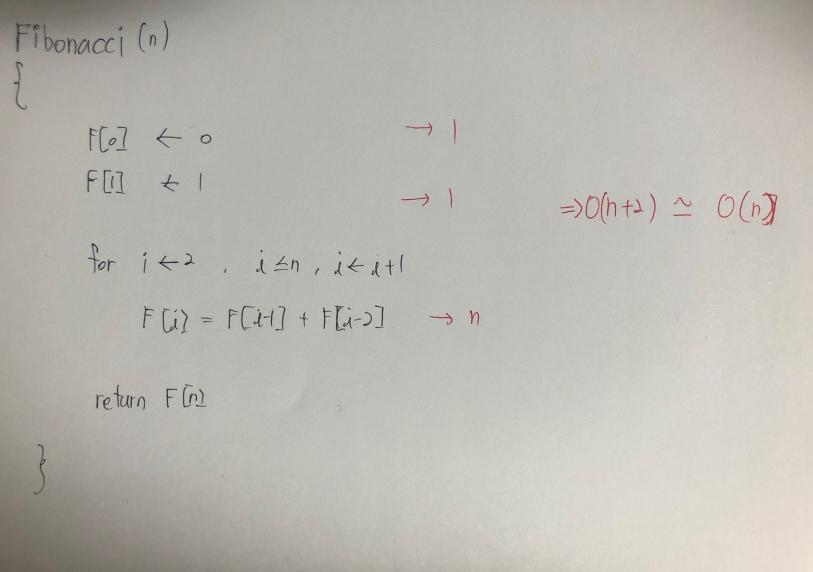 Fibonacci (n)
{
F[0] ← 0 → 1
F[1] ← 1 → 1
⇒O(n+2) ≃ O(n)
for i ← 2 , i ≤ n , i ← i+1
F[i] = F[i-1] + F[i-2] → n
return F[n]
}